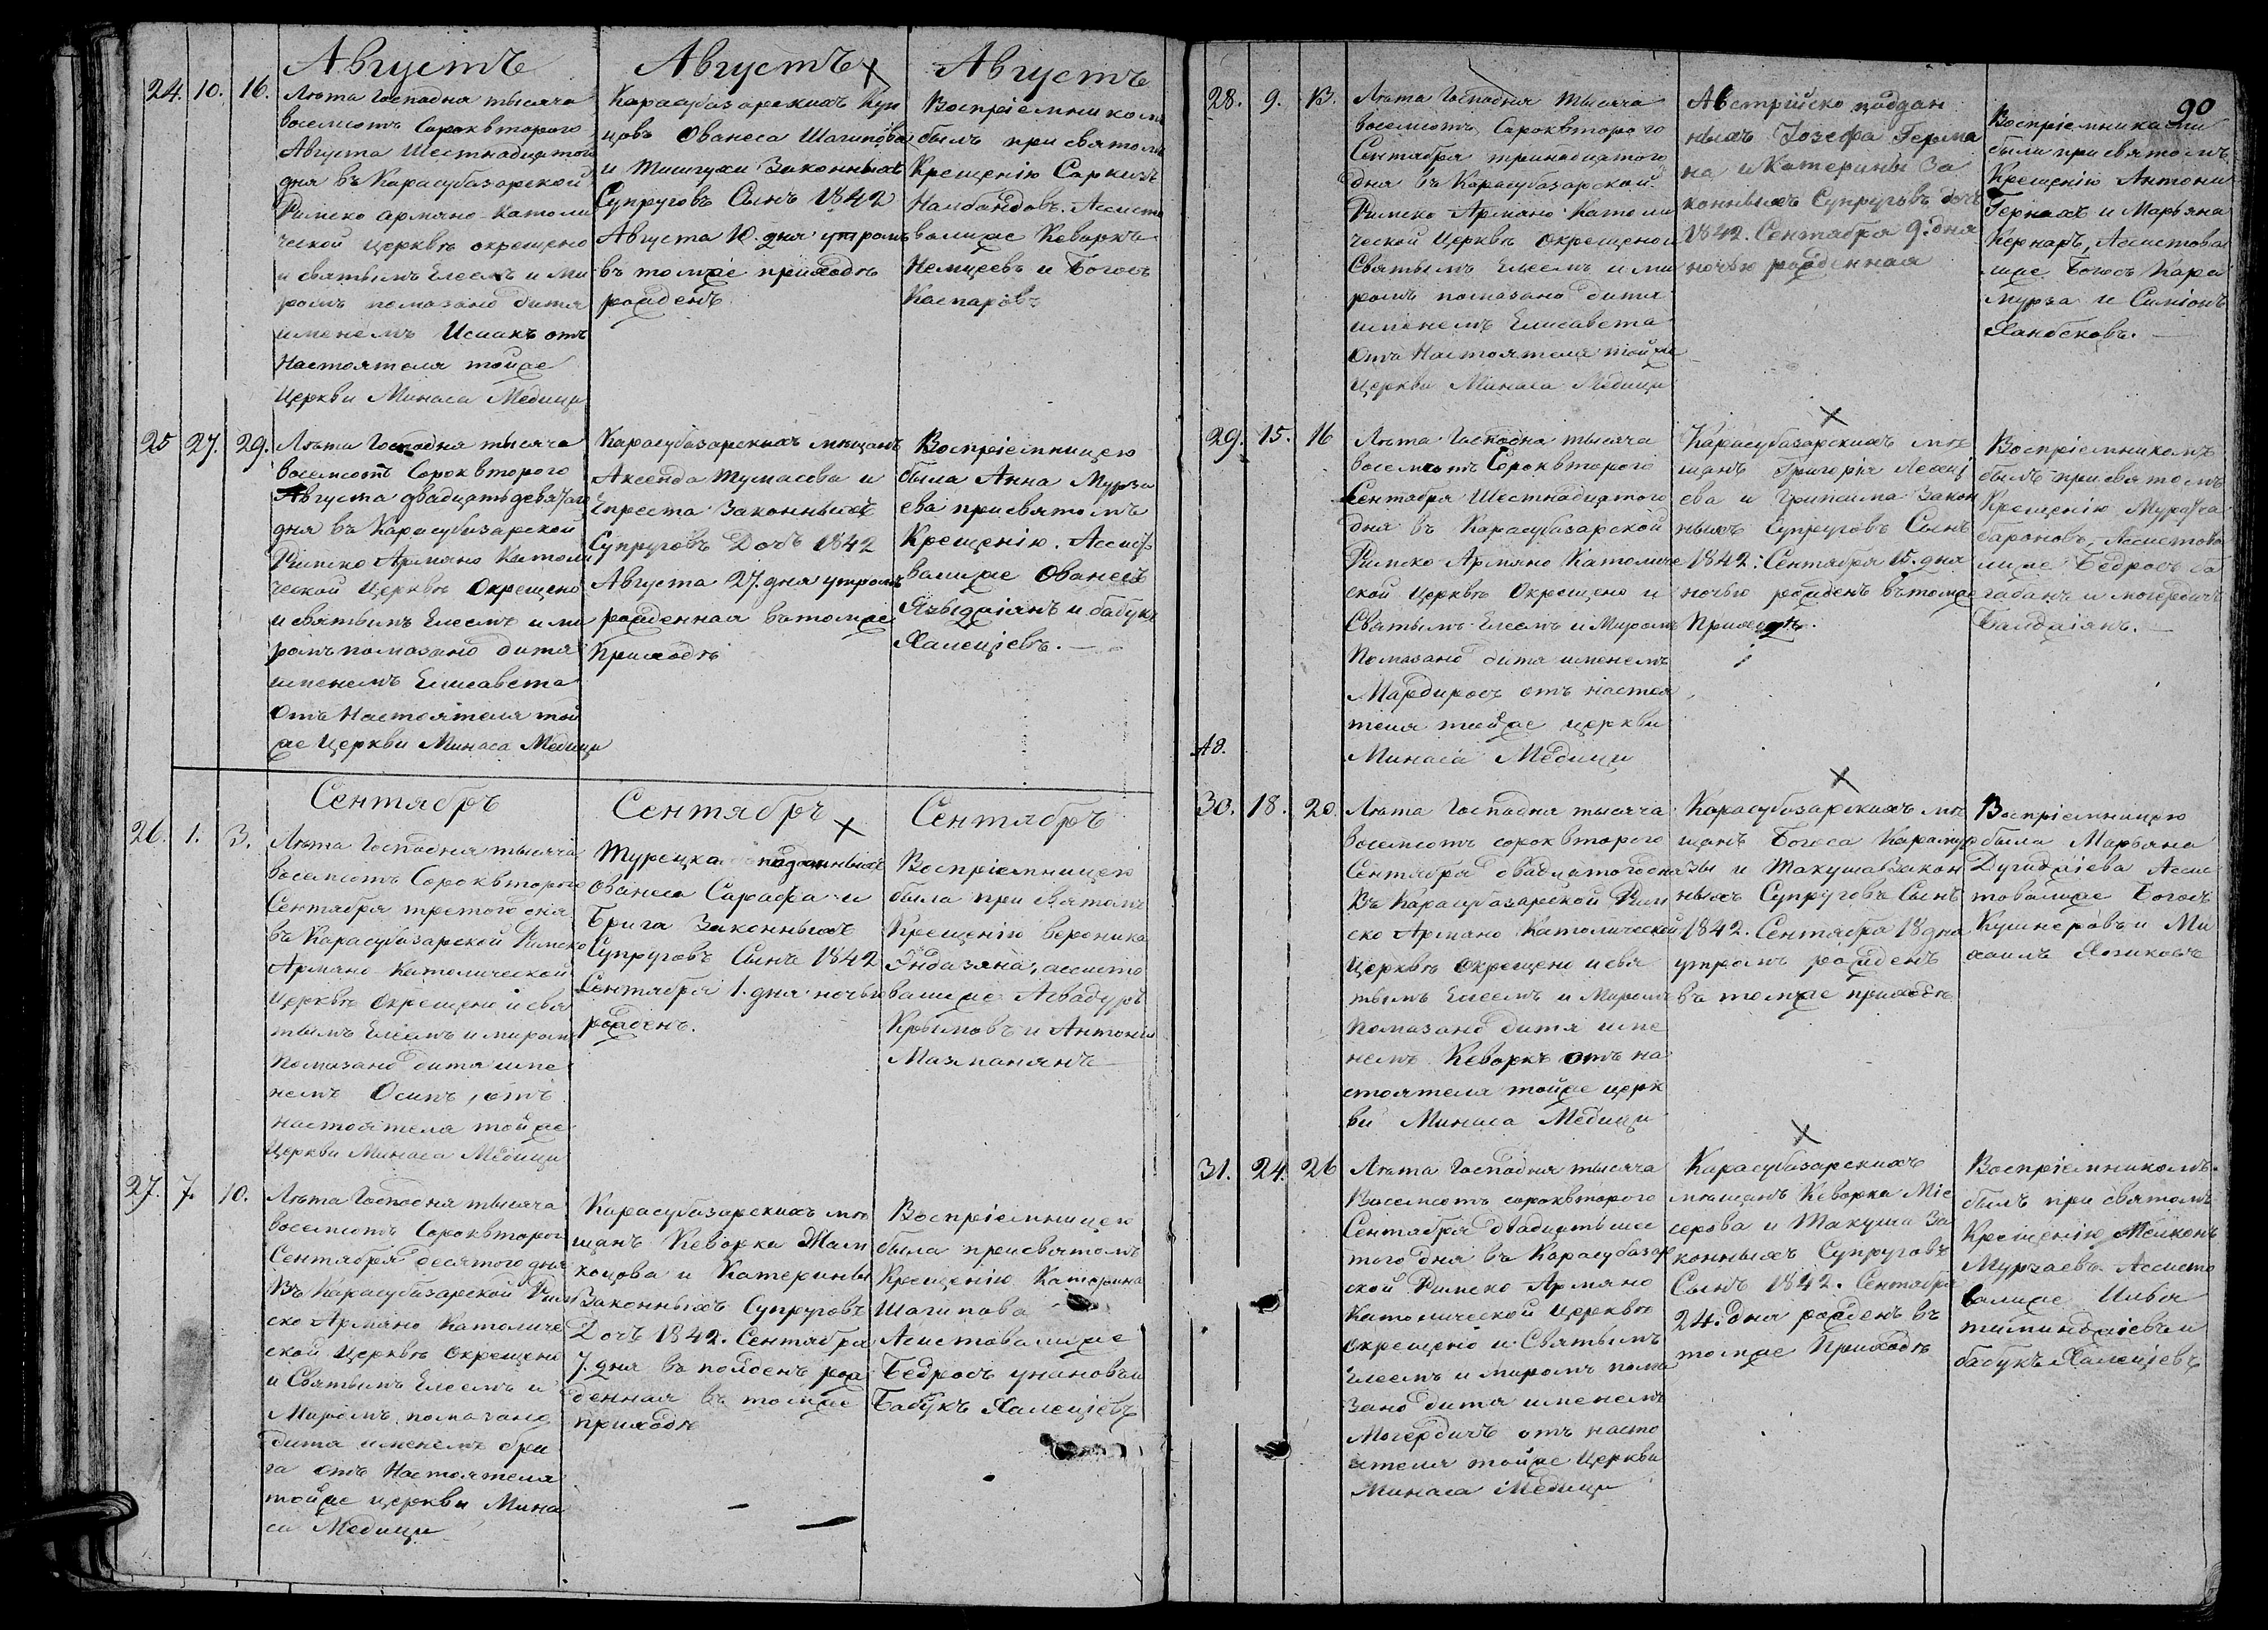 Августъ
24. 10. 16.
Лѣта Господня тысяча
восемсотъ Сорокъ второго
Августа Шестнадцатого
дня въ Карасубазарской
Римско армяно-католи
ческой церквѣ окрещено
и святымъ Елеемъ и ми
ромъ помазано дитя
именемъ Исаакъ отъ
Настоятеля тойже
Церкви Минаса Медици
Августъ
Карасубазарскихъ куп
цовъ Ованеса Шагинова
и Тишгухи Законныхъ
Супруговъ Сынъ 1842
Августа 10. дня утромъ
въ томже приходѣ
рожденъ
Августъ
Воспріемникомъ
былъ при святомъ
Крещенію Саркизъ
Налбандовъ. Ассисто
валиже Кеваркъ
Немцеевъ и Богосъ
Каспаровъ
25 27. 29.
Лѣта Господня тысяча
восемсотъ Сорокъ второго
Августа двадцать девятого
дня въ Карасубазарской
Римско Армяно Католи
ческой Церквѣ Окрещено
и святымъ Елеемъ и ми
ромъ помазано дитя
именемъ Елисавета
Отъ Настоятеля той
же Церкви Минаса Медици
Карасубазарскихъ мещанъ
Аксенда Тумасова и
Епреста Законныхъ
Супруговъ Дочь 1842
Августа 27. дня утромъ
рожденная въ томже
Приходѣ
Воспріемницею
была Анна Мурза
ева при святомъ
Крещенію. Ассисто
валиже Ованесъ
Язычіянъ и бабукъ
Халепціевъ.
Сентябръ
26. 1. 3.
Лѣта Господня тысяча
восемсотъ Сорокъ второго
Сентября третого дня
въ Карасубазарской Римско
Армяно Католической
Церквѣ окрещено и свя
тымъ Елеемъ и миромъ
Помазано дитя име
немъ Осипъ, отъ
настоятеля тойже
Церкви Минаса Медици
Сентябръ
Турецка подданныхъ
Ованеса Сарафа и
Брига Законныхъ
Супруговъ Сынъ 1842
Сентября 1. дня ночью
рожденъ.
Сентябръ
Воспріемницею
была при святомъ
Крещенію вероника
Индазяна, ассисто
валиже Асвадуръ
Крымовъ и Антоній
Мазманянъ
27. 7. 10.
Лѣта Господня тысяча
восемсотъ Сорокъ второго
Сентября десятого дня
Въ Карасубазарской Рим
ско Армяно Католиче
ской Церквѣ Окрещено
и Святымъ Елеемъ и
Миромъ помазано
дитя именемъ бри
га отъ Настоятеля
тойже церкви Мина
са Медици
Карасубазарскихъ мѣ
щанъ Кеворка Жам
коцова и Катерины
Законныхъ Супруговъ
Дочь 1842. Сентября
7. дня въ полденъ рож
денная въ томже
приходѣ
Воспріемницею
была при святомъ
Крещенію Катерина
Шагинова
Асистовалиже
Бедросъ унановъ и
Бабукъ Халепціевъ
90
28. 9. 13.
Лѣта Господня тысяча
восемсотъ Сорокъ второго
Сентября тринадцатого
дня въ Карасубазарской
Римско Армяно Католи
ческой Церквѣ Окрещено и
Святымъ Елеемъ и ми
ромъ помазано дитя
именемъ Елисавета
Отъ Настоятеля тойже
Церкви Минаса Медици
Австрійско поддан
ныхъ Іозефа Герма
на и Катерины За
конныхъ Супруговъ дочь
1842. Сентября 9. дня
ночью рожденная
Воспріемниками
были при святомъ
Крещенію Антони
и Марьяна
Кернаръ, Асистова
лиже Богосъ Кара
мурза и Симіонъ
Ханбековъ.
29. 15. 16
Лѣта Господня тысяча
восемсотъ Сорокъ второго
Сентября Шестнадцатого
дня въ Карасубазарской
Римско Армяно Католиче
ской Церквѣ Окрещено и
Святымъ Елеемъ и Миромъ
Помазано дитя именемъ
Мардиросъ отъ настоя
теля тойже церкви
Минаса Медици
Карасубазарскихъ мѣ
щанъ Григорія
ева и Закон
ныхъ Супруговъ Сынъ
1842: Сентября 15. дня
ночью рожденъ въ томже
Приходѣ.
Воспріемникомъ
былъ при святомъ
Крещенію Мурадча
бароновъ, Ассистова
лиже Бедросъ ба
габанъ и могердичъ
Балджіянъ.
30. 18. 20.
Лѣта Господня тысяча
восемсотъ сорокъ второго
Сентября двадцатого дня
Въ Карасубазарской Рим
ско Армяно Католической
Церквѣ окрещено и свя
тымъ Елеемъ и Миромъ
Помазано дитя име
немъ Кеворкъ отъ на
стоятеля тойже церк
ви Минаса Медици
Карасубазарскихъ мѣ
щанъ Богоса Карамур
зы и Такуша Закон
ныхъ Супруговъ Сынъ
1842. Сентября 18 дня
утромъ рожденъ
въ томже приходѣ
Воспріемницею
была Марьяна
Дугиджіева Асис
товалиже Богосъ
Кушнеровъ и Ми
хаилъ Язиковъ
31. 24. 26
Лѣта Господня тысяча
Восемсотъ сорокъ второго
Сентября двадцать шес
того дня въ Карасубазар
ской Римско Армяно
Католической Церквѣ
окрещено и Святымъ
Елеемъ и миромъ пома
зано дитя именемъ
Могердичъ отъ насто
ятеля тойже Церкви
Минаса Медици
Карасубазарскихъ
мѣщанъ Кеворка Міс
серова и Такуша За
конныхъ Супруговъ
Сынъ 1842. Сентября
24. дня рожденъ въ
томже Приходѣ
Воспріемникомъ
былъ при святомъ
Крещенію Мелконъ
Мурзаевъ. Ассисто
валиже Илья
тилинджіевъ и
бабукъ Халепціевъ